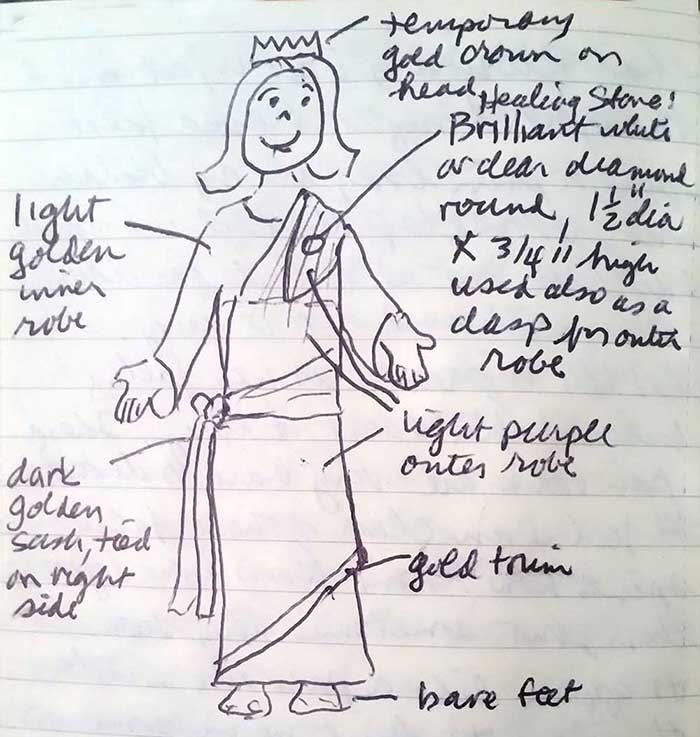 temporary
gold crown on
head
Healing Stone:
Brilliant white
or clear diamond
round, 1 1/2" dia
x 3/4" high
used also as a
clasp for outer
robe
light
golden
inner
robe
light purple
outer robe
dark
golden
sash, tied
on right
side
gold trim
bare feet